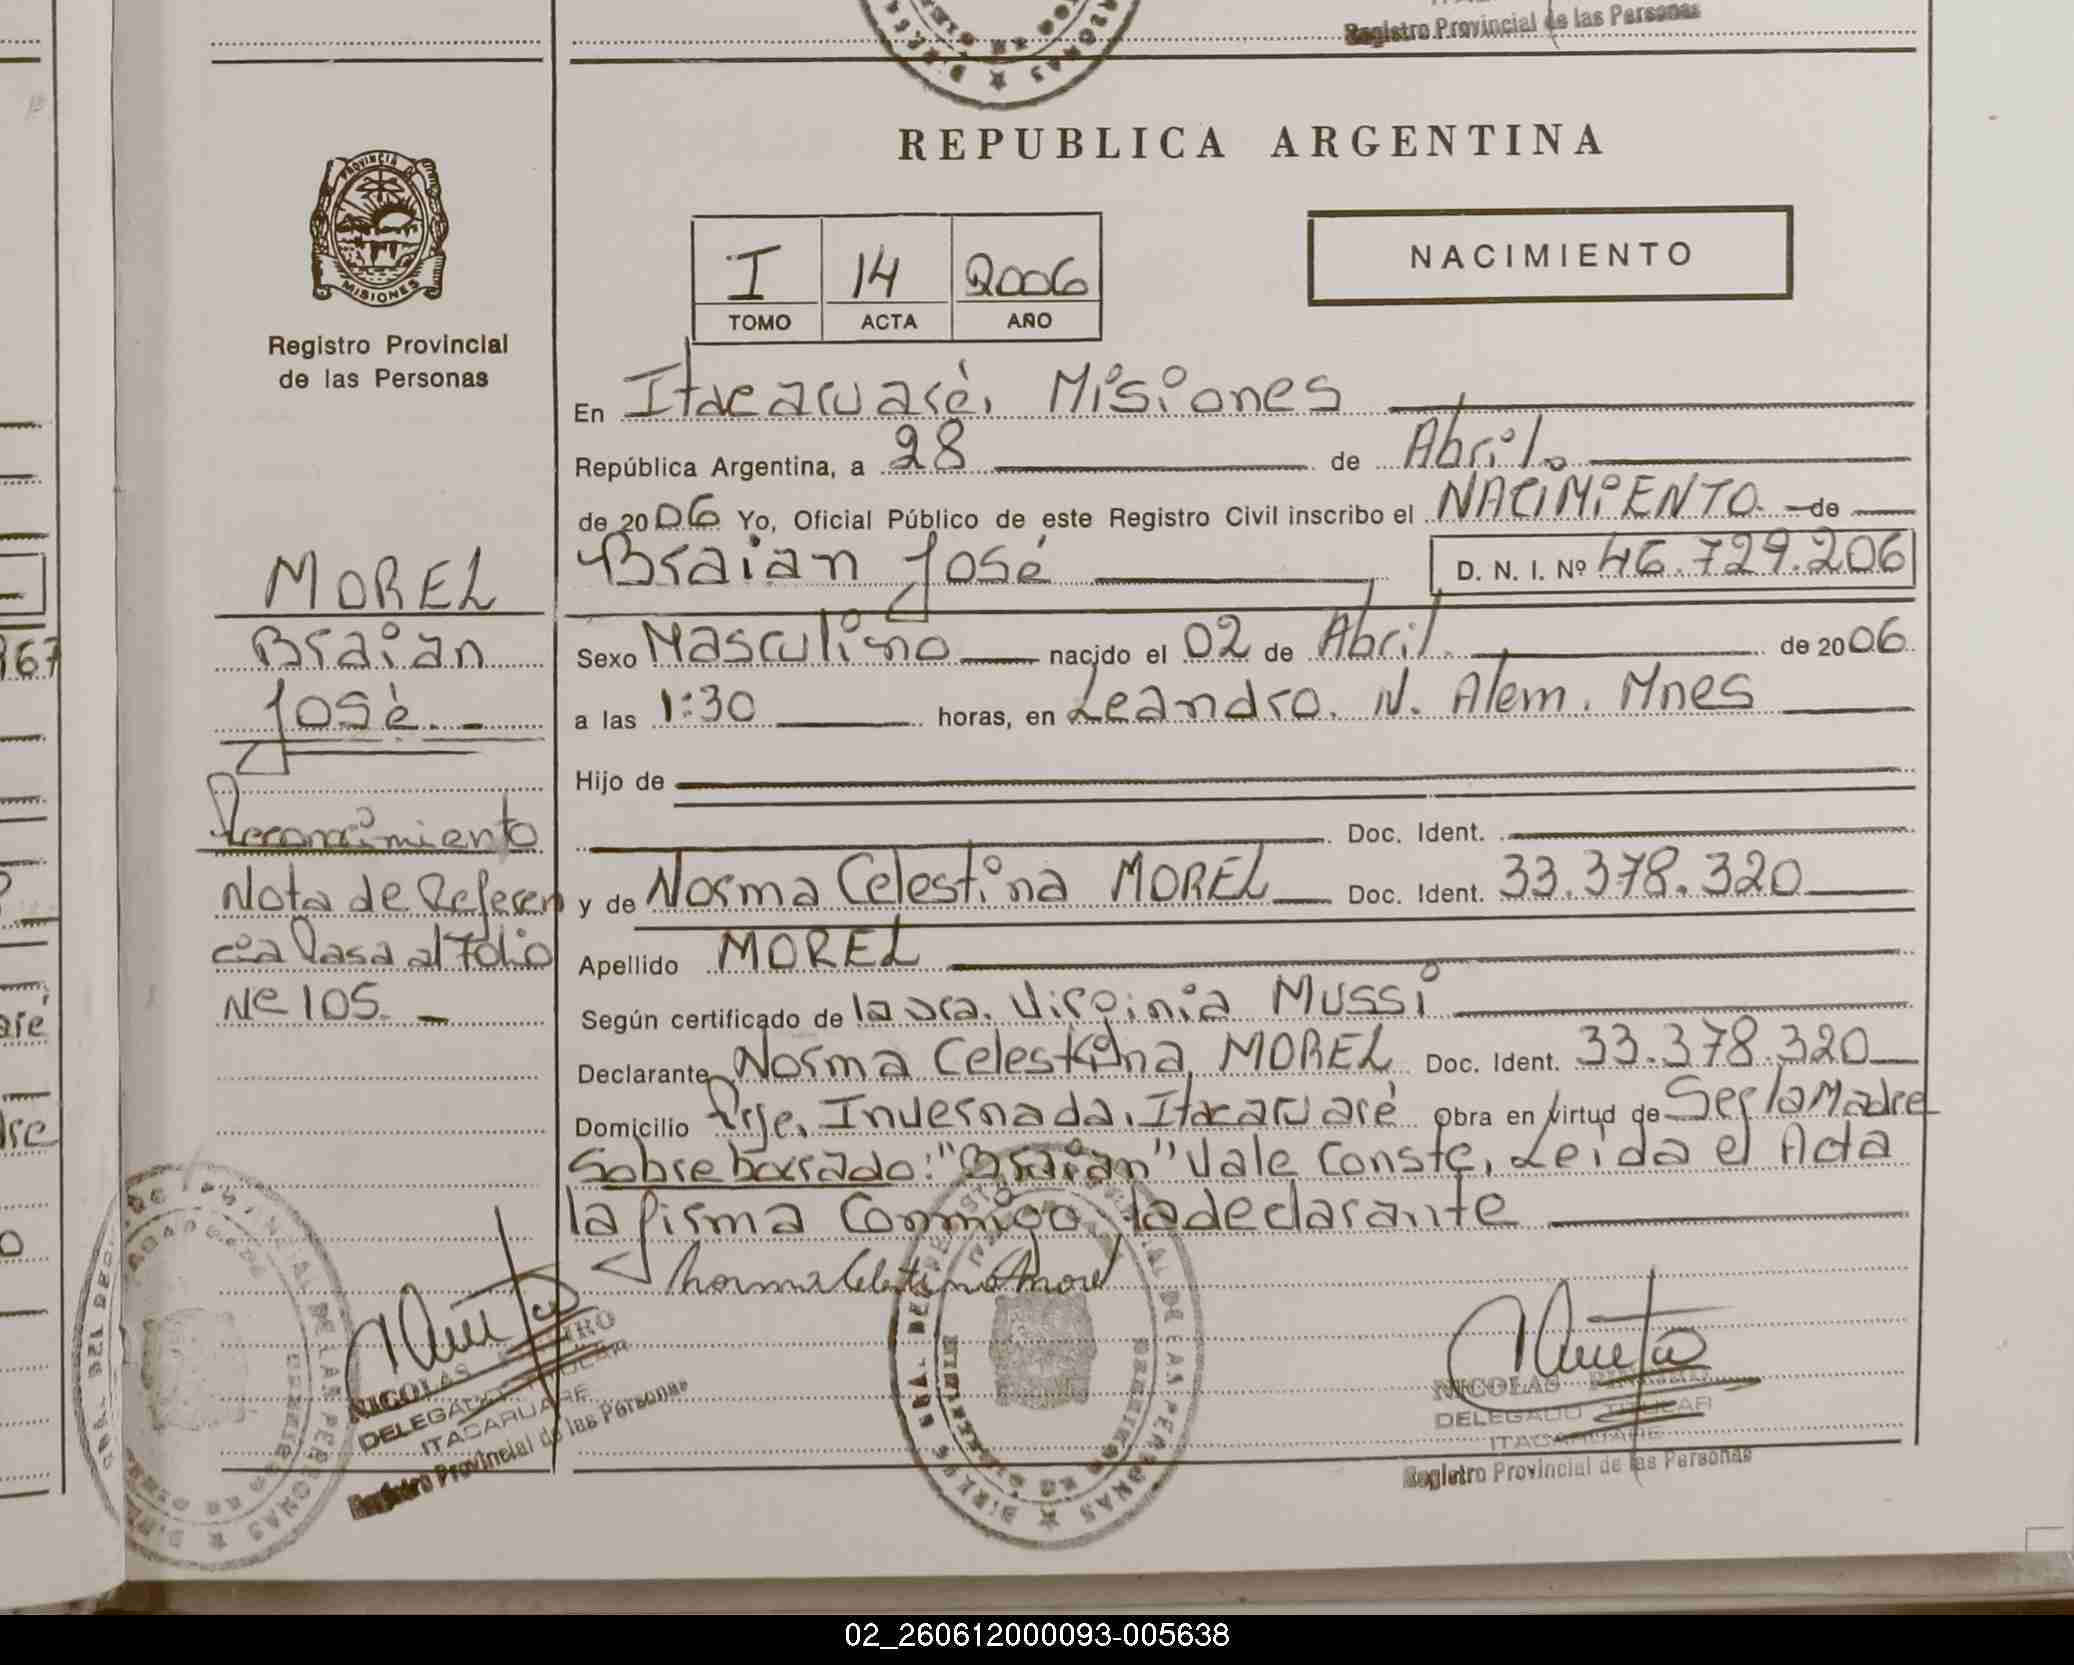 Registro Provincial de las Personas
REPUBLICA ARGENTINA
PROVINCIA DE
MISIONES
Registro Provincial
de las Personas
I 14 2006
TOMO ACTA AÑO
NACIMIENTO
En Itacaruaré, Misiones
República Argentina, a 28 de Abril.
de 2006 Yo, Oficial Público de este Registro Civil inscribo el NACIMIENTO de
Braian José D. N. I. Nº 46.729.206
Sexo Masculino nacido el 02 de Abril. de 2006.
a las 1:30 horas, en Leandro. N. Alem. Mnes
Hijo de
Doc. Ident.
y de Norma Celestina MOREL Doc. Ident. 33.378.320
Apellido MOREL
Según certificado de la Dra. Virginia MUSSI
Declarante Norma Celestina MOREL Doc. Ident. 33.378.320
Domicilio Pje. Invernada, Itacaruaré Obra en virtud de Ser la Madre
Sobre borrado: "Braian" Vale Conste, Leida el Acta
la firma Conmigo la declarante
Norma Celestina Morel
MOREL
Braian
José.
Reconocimiento
Nota de Referen
cia Pasa al Folio
Nº 105.
NICOLAS
DELEGADO TITULAR
ITACARUARE
Registro Provincial de las Personas
NICOLAS
DELEGADO TITULAR
ITACARUARE
Registro Provincial de las Personas
02_260612000093-005638